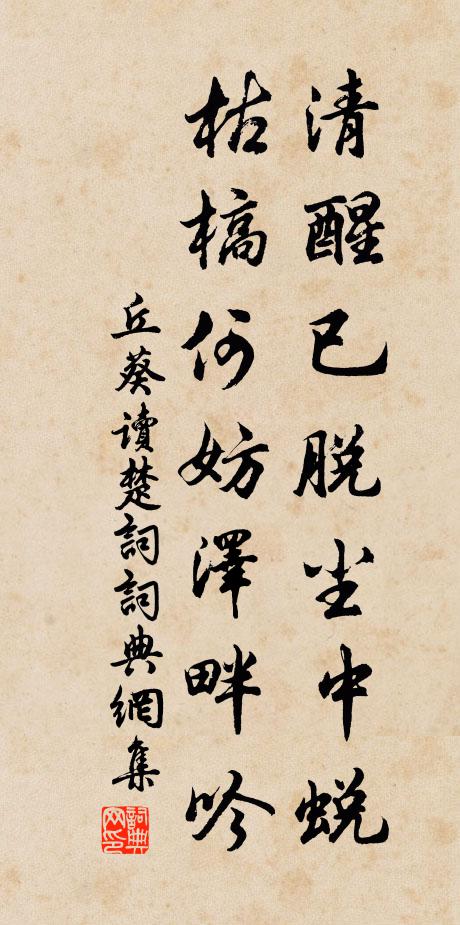 清醒已脫尘中蛻
枯槁何妨澤畔吟
丘葵讀楚詞詞典網集
詞典网印